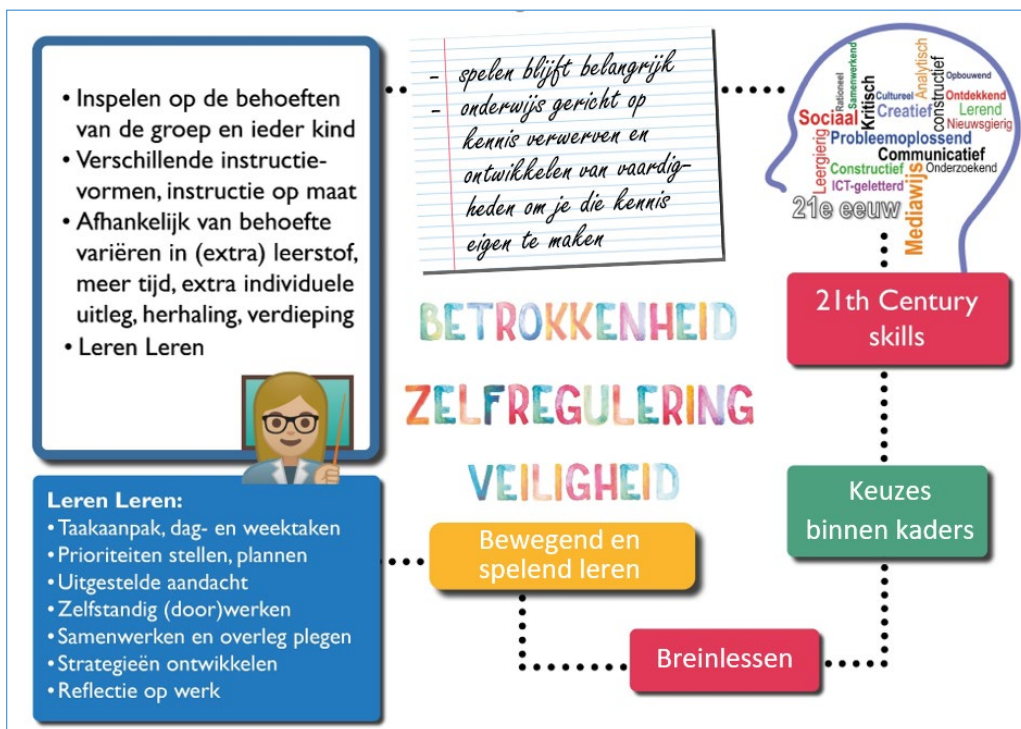 • Inspelen op de behoeften
van de groep en ieder kind
• Verschillende instructie-
vormen, instructie op maat
• Afhankelijk van behoefte
variëren in (extra) leerstof,
meer tijd, extra individuele
uitleg, herhaling, verdieping
• Leren Leren
- spelen blijft belangrijk
- onderwijs gericht op
kennis verwerven en
ontwikkelen van vaardig-
heden om je die kennis
eigen te maken
Rationeel
Samenwerkend
Kritisch
Analytisch
Opbouwend
Cultureel
constructief
Ontdekkend
Sociaal
Creatief
Lerend
Nieuwsgierig
Probleemoplossend
Leergierig
Communicatief
Constructief
Onderzoekend
ICT-geletterd
21e eeuw
Mediawijs
21th Century
skills
BETROKKENHEID
ZELFREGULERING
VEILIGHEID
Keuzes
binnen kaders
Leren Leren:
• Taakaanpak, dag- en weektaken
• Prioriteiten stellen, plannen
• Uitgestelde aandacht
• Zelfstandig (door)werken
• Samenwerken en overleg plegen
• Strategieën ontwikkelen
• Reflectie op werk
Bewegend en
spelend leren
Breinlessen